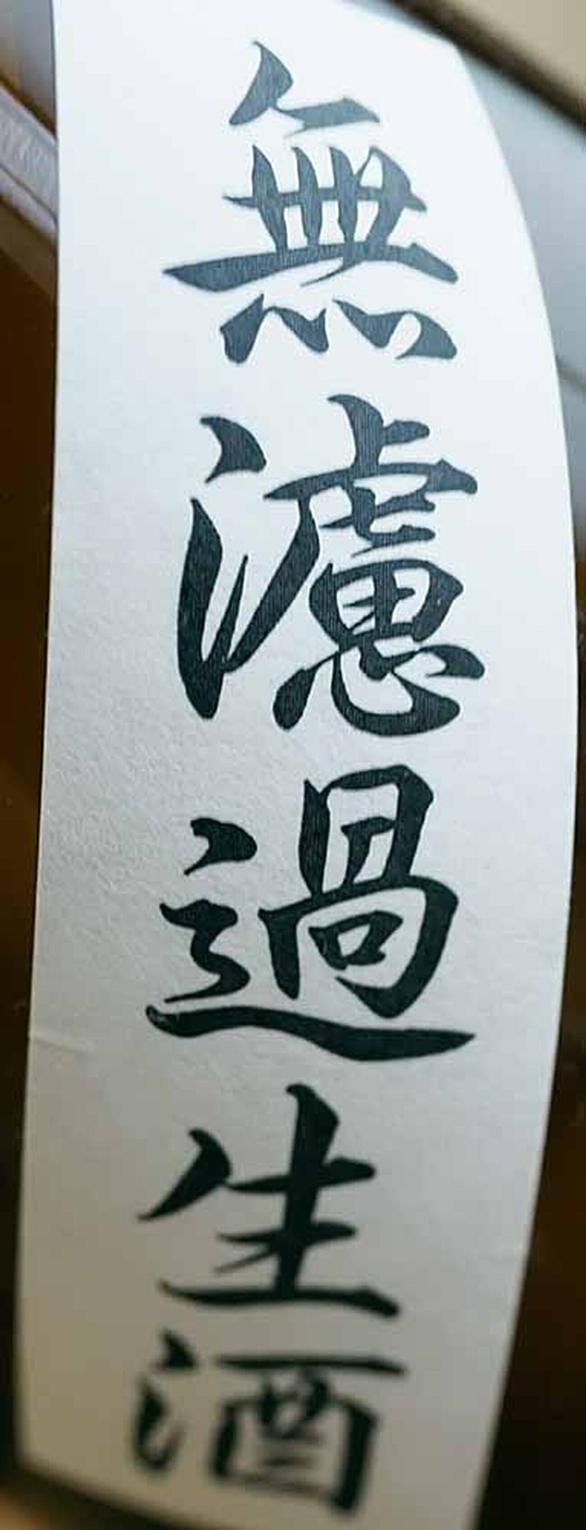 無濾過生酒